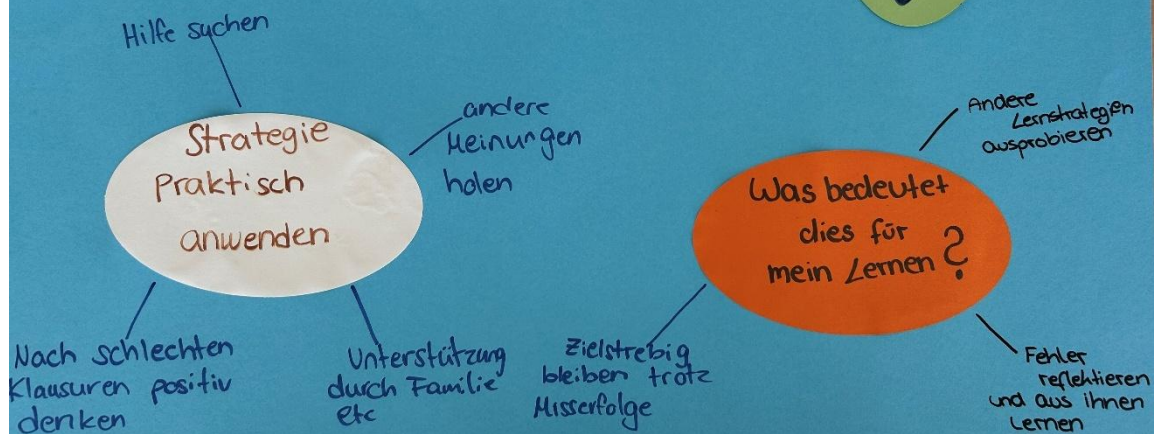 Hilfe suchen
Strategie
Praktisch
anwenden
andere
Meinungen
holen
Nach schlechten
Klausuren positiv
denken
Unterstützung
durch Familie
etc
Was bedeutet
dies für
mein Lernen?
Andere
Lernstrategien
ausprobieren
Zielstrebig
bleiben trotz
Misserfolge
Fehler
reflektieren
und aus ihnen
Lernen